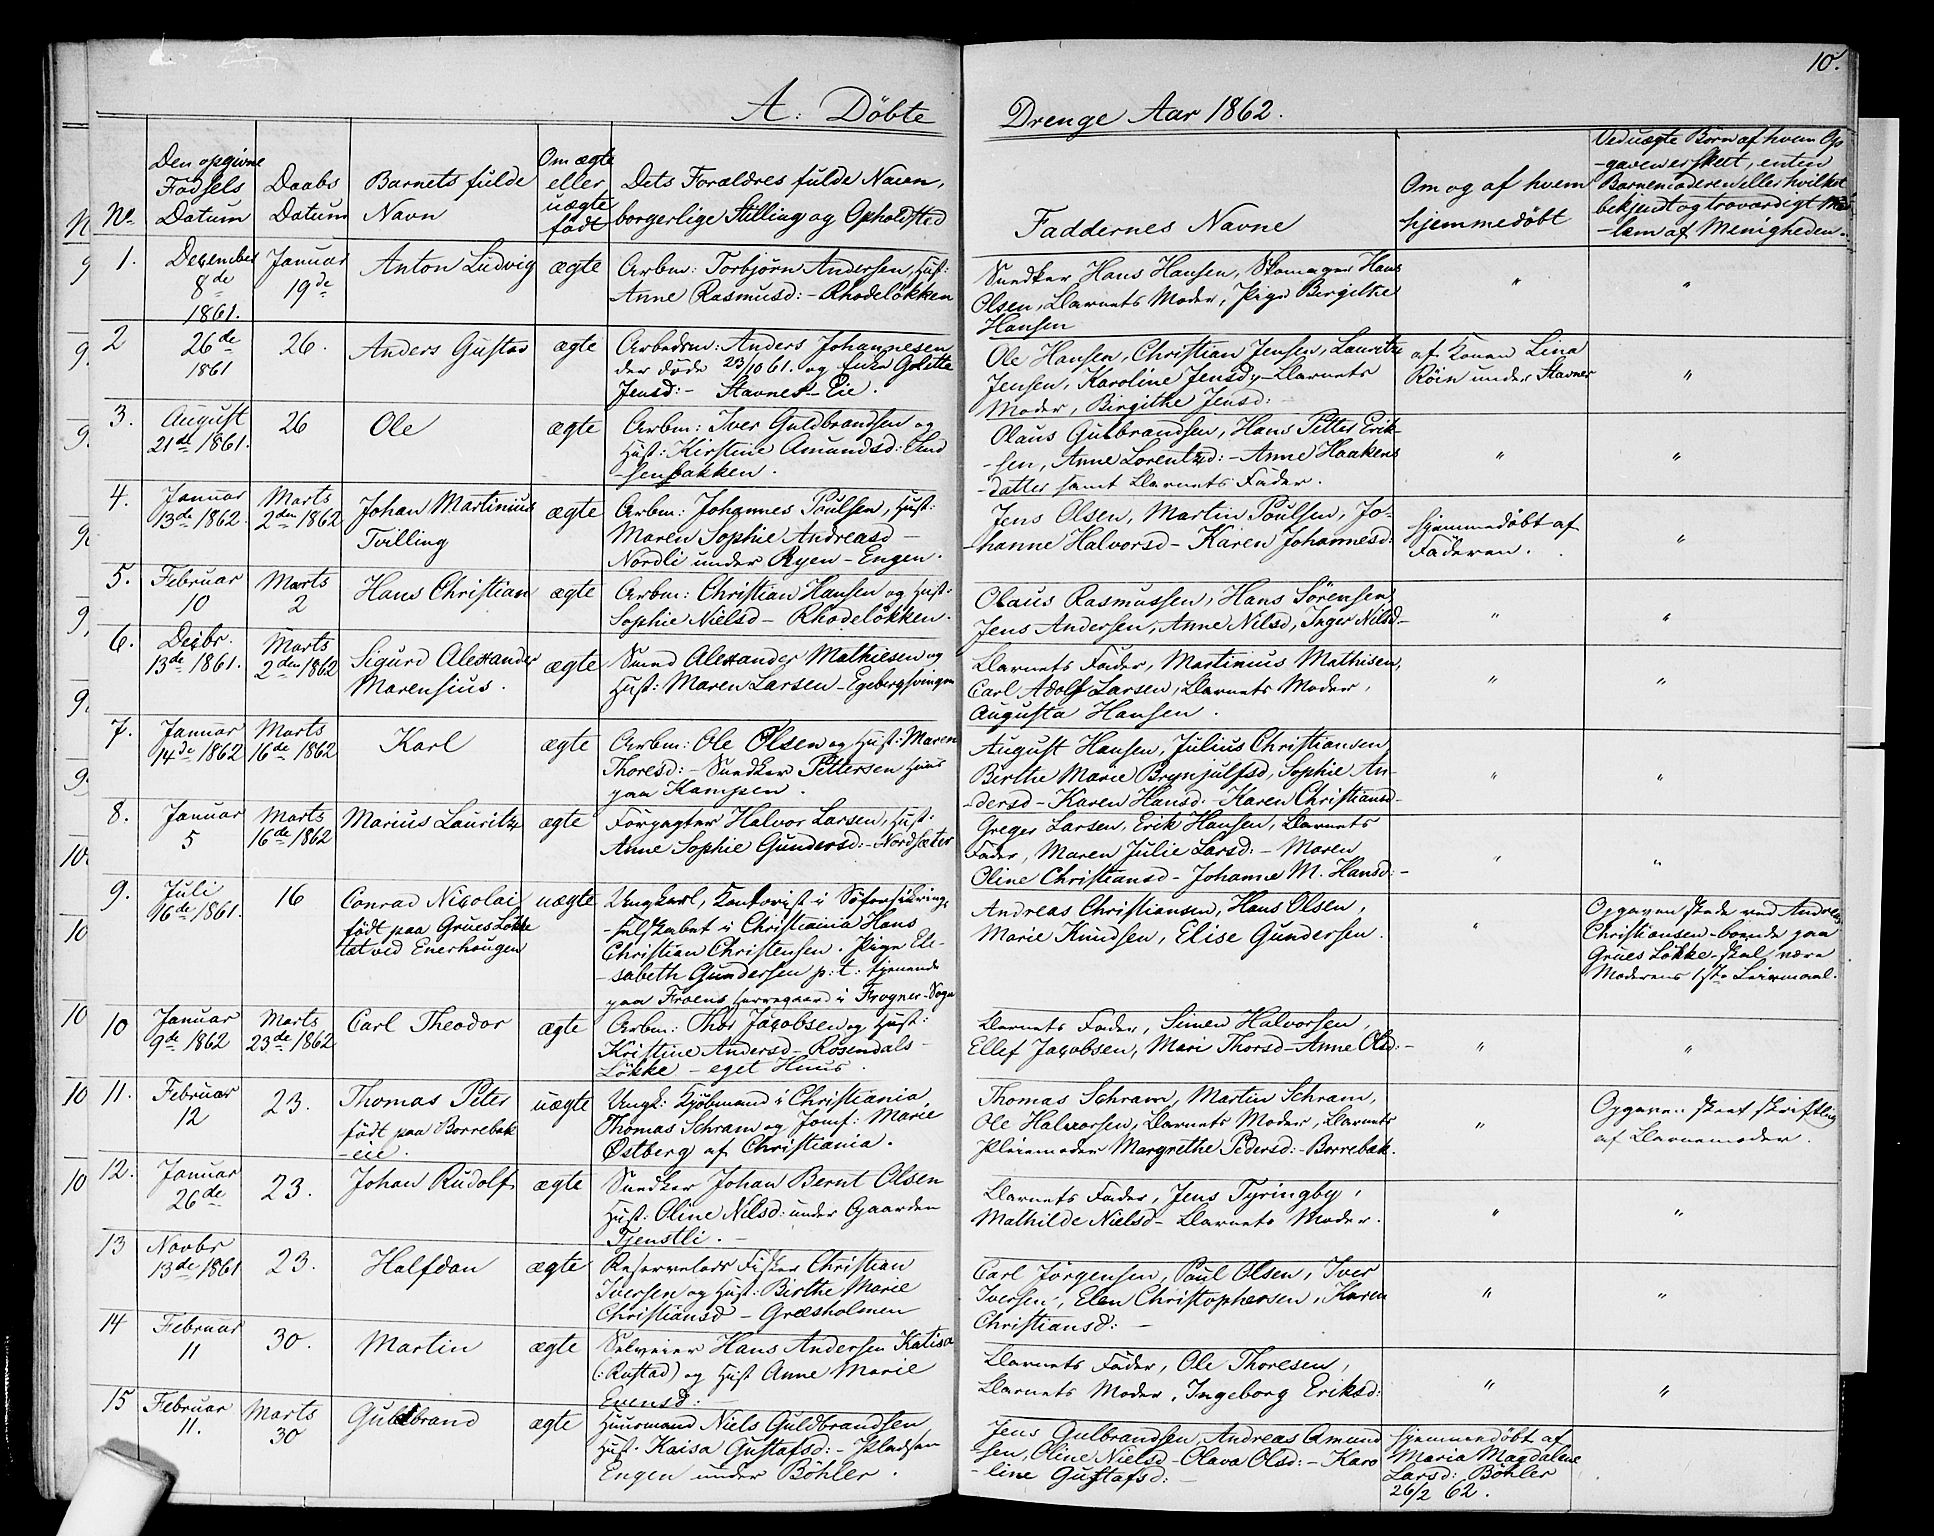 A: Döbte
Drenge Aar 1862.
10.
No.
Den opgivne
Fødsels
Datum
Daabs
Datum
Barnets fulde
Navn
Om ægte
eller
uægte
født
Dets Forældres fulde Navn,
borgerlige Stilling og Opholdsted
Faddernes Navne
Om og af hvem
hjemmedøbt
Ved uægte Børn af hvem Op
-gaven er skeet, enten
Barnemoderen eller hvilket
bekjendt og troværdigt Med
-lem af Menigheden.
1.
December
8de
1861.
Januar
19de
Anton Ludvig
ægte
Arbm: Torbjørn Andersen, Hust:
Anne Rasmusd: - Rhodeløkken
Snedker Hans Hansen, Skomager Hans
Olsen, Barnets Moder, Pige Birgithe
Hansen
"
"
2
26de
1861
26.
Anders Gustav
ægte
Arbeidsm: Anders Johannesen
der døde 23/10 61. og Enke Golette
Jensd: - Stavnes-Eie.
Ole Hansen, Christian Jensen, Lauritz
Jensen, Karoline Jensd, - Barnets
Moder, Birgithe Jensd: -
af Konen Lina
Röin under Stavnes
"
3.
August
21de 1861.
26
Ole
ægte
Arbm: Iver Guldbrandsen og
Hust: Kirstine Amundsd: Lend
-senbakken.
Olaus Gulbrandsen, Hans Petter Erik-
-sen, Anne Lorentzd: - Anne Haakens
-datter samt Barnets Fader.
"
"
4.
Januar
13de 1862.
Marts
2den 1862
Johan Martinius
Tvilling
ægte
Arbm: Johannes Poulsen, Hust:
Maren Sophie Andreasd -
Nordli under Ryen - Engen.
Jens Olsen, Martin Poulsen, Jo-
-hanne Halvorsd - Karen Johannesd:
Hjemmedøbt af
Faderen.
"
5.
Februar
10
Marts
2
Hans Christian
ægte
Arbm: Christian Hansen og Hust:
Sophie Nielsd - Rhodeløkken.
Olaus Rasmussen, Hans Sörensen,
Jens Andersen, Anne Nilsd, Inger Nilsd -
"
"
6.
Decbr.
13de 1861.
Marts
2den 1862
Sigurd Alexander
Marensius.
ægte
Smed Alexander Mathiesen og
Hust: Maren Larsen - Egebergsvingen
Barnets Fader, Martinius Mathisen,
Carl Adolf Larsen, Barnets Moder,
Augusta Hansen.
"
"
7.
Januar
14de 1862
Marts
16de 1862
Karl
ægte
Arbm: Ole Olsen og Hust: Maren
Thoresd: - Snedker Pettersen Huus
paa Kampen.
August Hansen, Julius Christiansen
Birthe Marie Brynjulfsd, Sophie An-
-dersd - Karen Hansd. - Karen Christiansd -
"
"
8.
Januar
5
Marts
16de 1862
Marius Lauritz
ægte
Forpagter Halvor Larsen, Hust:
Anne Sophie Gundersd: - Nordsæter
Greger Larsen, Erik Hansen, Barnets
Fader, Maren Julie Larsd: - Maren
Oline Christiansd - Johanne M. Hansd: -
"
"
9.
Juli
16de 1861.
16
Conrad Nicolai
født paa Grues Løkke
tæt ved Enerhaugen
uægte
Ungkarl, Kontorist i Söforsikrings
-selskabet i Christiania Hans
Christian Christensen. Pige Ele-
-sabeth Gundersen p: t: tjenende
paa Froens Herregaard i Frogner-Sogn
Andreas Christiansen, Hans Olsen,
Marie Knudsen, Elise Gundersen.
"
Opgaven skede ved Andreas
Christiansen - boende paa
Grues Løkke - skal være
Moderens 1ste Leiermaal.
10
Januar
9de 1862
Marts
23de 1862
Carl Theodor
ægte
Arbm: Thor Jacobsen og Hust:
Kristine Andersd - Rosendals-
Løkke - eget Huus.
Barnets Fader, Simen Halvorsen,
Ellef Jacobsen, Mari Thorsd - Anne Olsd: -
"
"
11.
Februar
12
23.
Thomas Peter
født paa Borrebæk
-eie.
uægte
Ungk: Kjøbmand i Christiania,
Thomas Schram og Jomf: Marie
Østberg af Christiania.
Thomas Schram, Martin Schram,
Ole Halvorsen, Barnets Moder, Barnets
Pleiemoder Margrethe Pedersd: - Borrebæk.
"
Opgaven skeet skriftlig
af Barnemoder.
12.
Januar
26de
23.
Johan Rudolf
ægte
Snedker Johan Bernt Olsen
Hust: Oline Nilsd: under Gaarden
Tjenstli. -
Barnets Fader, Jens Tyringby,
Mathilde Nielsd - Barnets Moder.
"
"
13
Novbr
13de 1861
23.
Halfdan
ægte
Reservelods Fisker Christian
Iversen og Hust: Birthe Marie
Christiansd - Græsholmen
Carl Jörgensen, Poul Olsen, Iver
Iversen, Elen Christophersen, Karen
Christiansd: -
"
"
14
Februar
11
30.
Martin
ægte
Selveier Hans Andersen Katisa
(: Rustad) og Hust Anne Marie
Evensd: -
Barnets Fader, Ole Thoresen,
Barnets Moder, Ingeborg Eriksd:
"
"
15
Februar
11.
Marts
30
Guldbrand
ægte
Huusmand Niels Guldbrandsen
Hust. Kaisa Gustafsd: - Pladsen
Engen under Böhler.
Jens Gulbrandsen, Andreas Amund
-sen, Oline Nielsd - Olava Olsd: - Karo
-line Gustafsd: -
Hjemmedøbt af
Maria Magdalene
Larsd: Böhler
26/2 62.